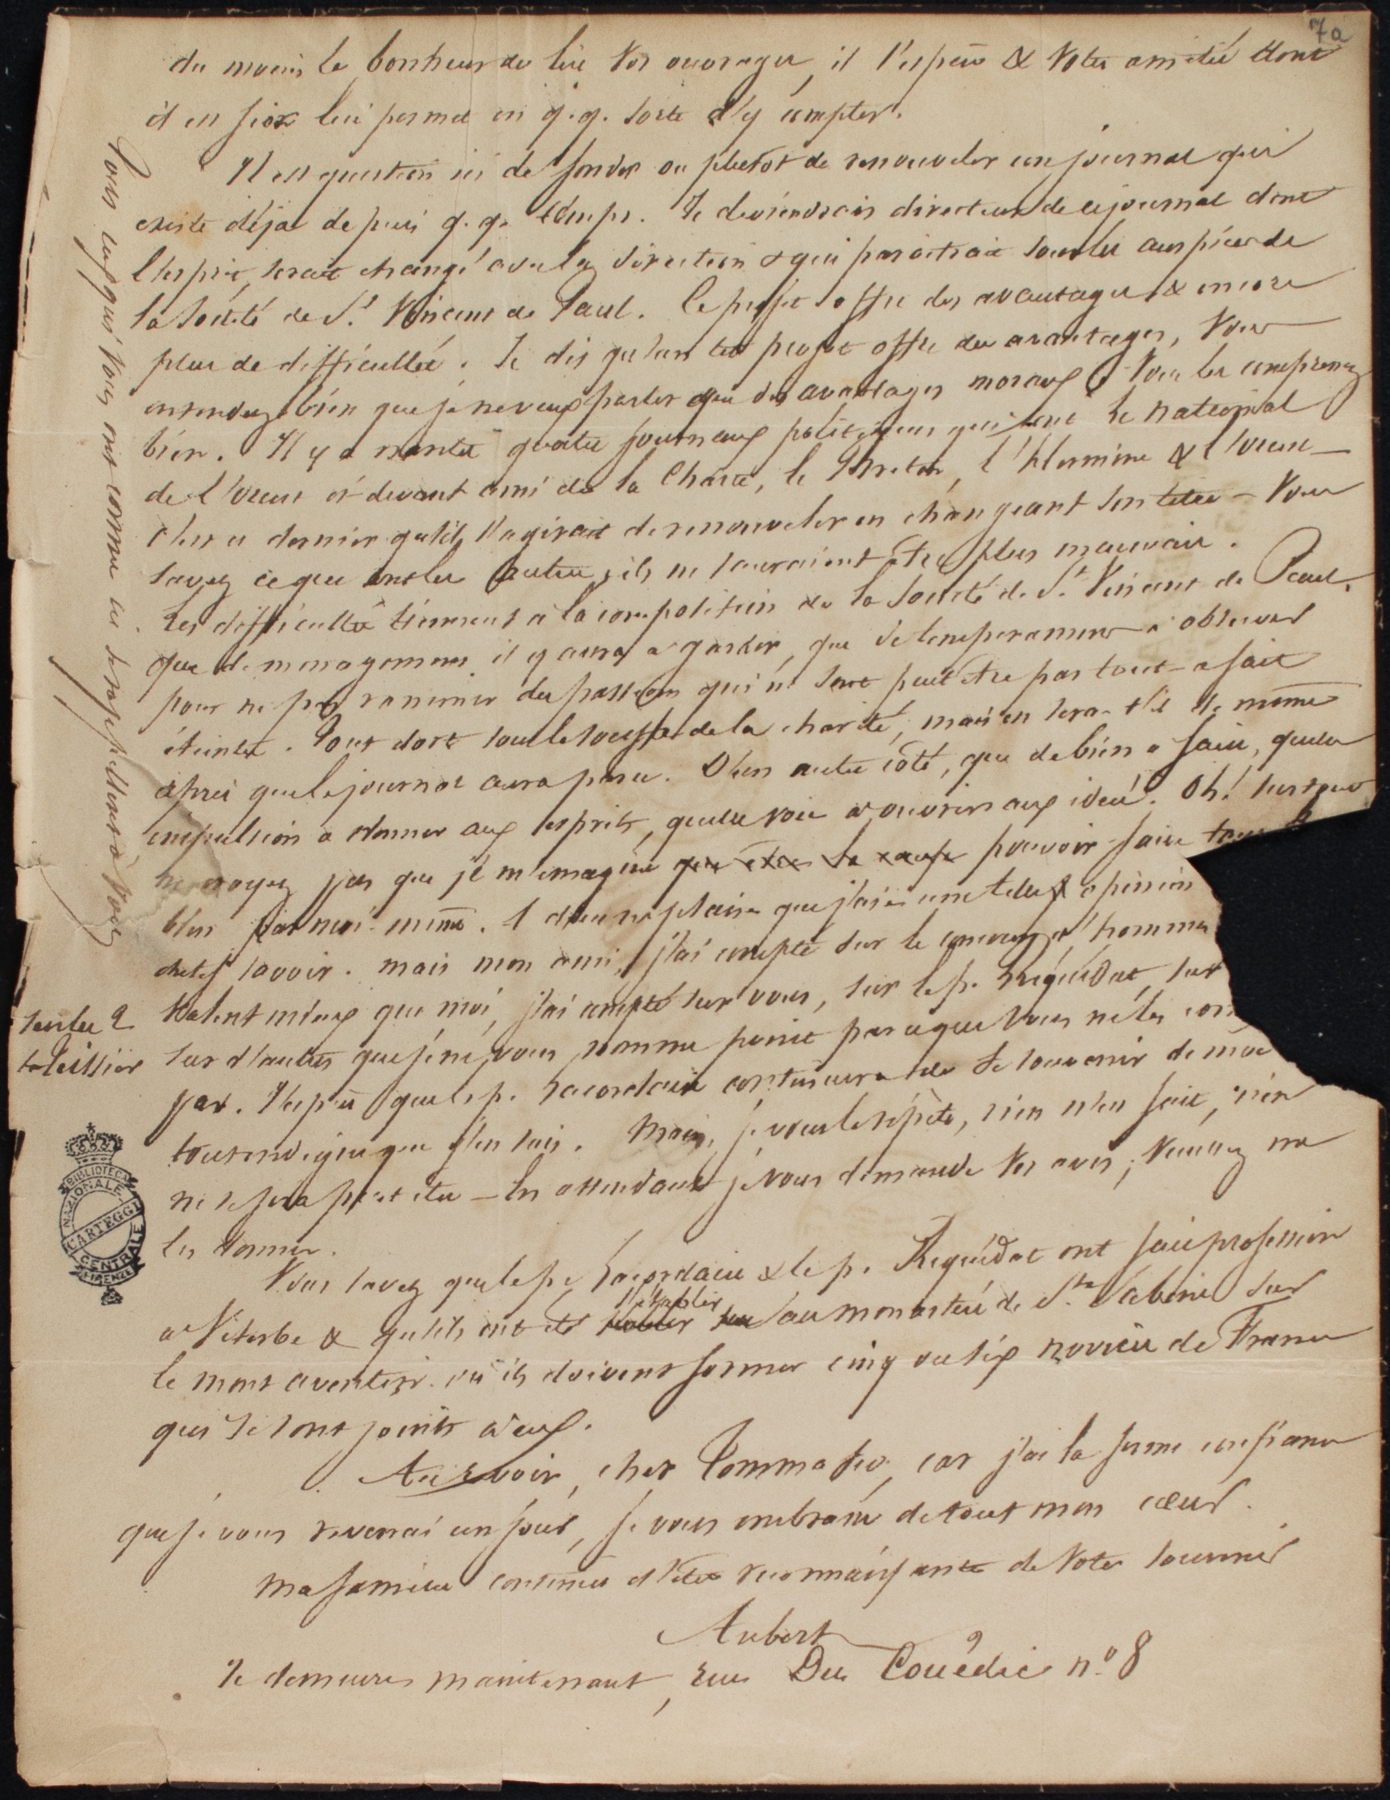 7a
du moins le bonheur de lire vos ouvrages, il l'espère & votre amitié dont
il est fier lui permet en q.q. sorte d'y compter.
Il est question ici de fonder ou plutôt de renouveler un journal qui
existe déja depuis q.q. temps. Je deviendrais directeur de ce journal dont
l'esprit serait changé avec la direction & qui paraitrait sous les auspices de
la société de St. Vincent de Paul. Ce projet offre des avantages & encore
plus de difficultés. Je dis qu'un tel projet offre des avantages, vous
entendez bien que je ne veux parler que des avantages moraux. Vous les comprenez
bien. Il y a à nantes quatre journaux politiques qui sont le national
de l'ouest ci-devant ami de la Charte, le Breton, l'hermine & l'ouest —
c'est ce dernier qu'il s'agirait de renouveler en changeant son titre — vous
savez ce que sont les autres, ils ne sauraient être plus mauvais.
Les difficultés tiennent à la composition de la Société de St Vincent de Paul.
que de menagemens il y aura a garder, que de temperamens à observer
pour ne pas ranimer des passions qui ne sont peut être pas tout-a-fait
éteintes. Tout dort sous le souffle de la charité, mais en sera-t-il de même
après que le journal aura paru. D'un autre côté, que de bien a faire, quelle
impulsion a donner aux esprits, quelle voie a ouvrir aux idées. Oh! surtout
ne croyez pas que je m'imagine pouvoir faire tous
bien par moi-même. A dieu ne plaise que j'aie une telle opinion
chetif savoir. mais mon ami, j'ai compté sur le concours d'hommes
valent mieux que moi, j'ai compté sur vous, sur le p. Requédat, sur
sur d'autres que je ne vous nomme point parceque vous ne les
pas. J'espère que le p. Lacordaire continuera de se souvenir de moi
tout indigne que j'en suis. Mais, je vous le répète, rien n'est fait, rien
ne se fera peut etre — En attendant je vous demande vos avis; veuillez me
les donner.
Vous savez que le p. Lacordaire & le p. Requédat ont fait profession
s'établir
a Viterbe & qu'ils ont été au monastère de Ste Sabine sur
le mont aventin où ils doivent former cinq ou six novices de France
qui se sont joints à eux.
Au revoir, cher Tommaseo, car j'ai la ferme confiance
que je vous reverrai un jour, je vous embrasse de tout mon cœur.
ma famille continue d'être reconnaissante de votre souvenir
Aubert
Je demeure maintenant, rue Du Couëdic n.º 8
Tous ceux qui vous ont connu ici se rappellent à vous
BIBLIOTECA NAZIONALE
CARTEGGI
CENTRALE FIRENZE